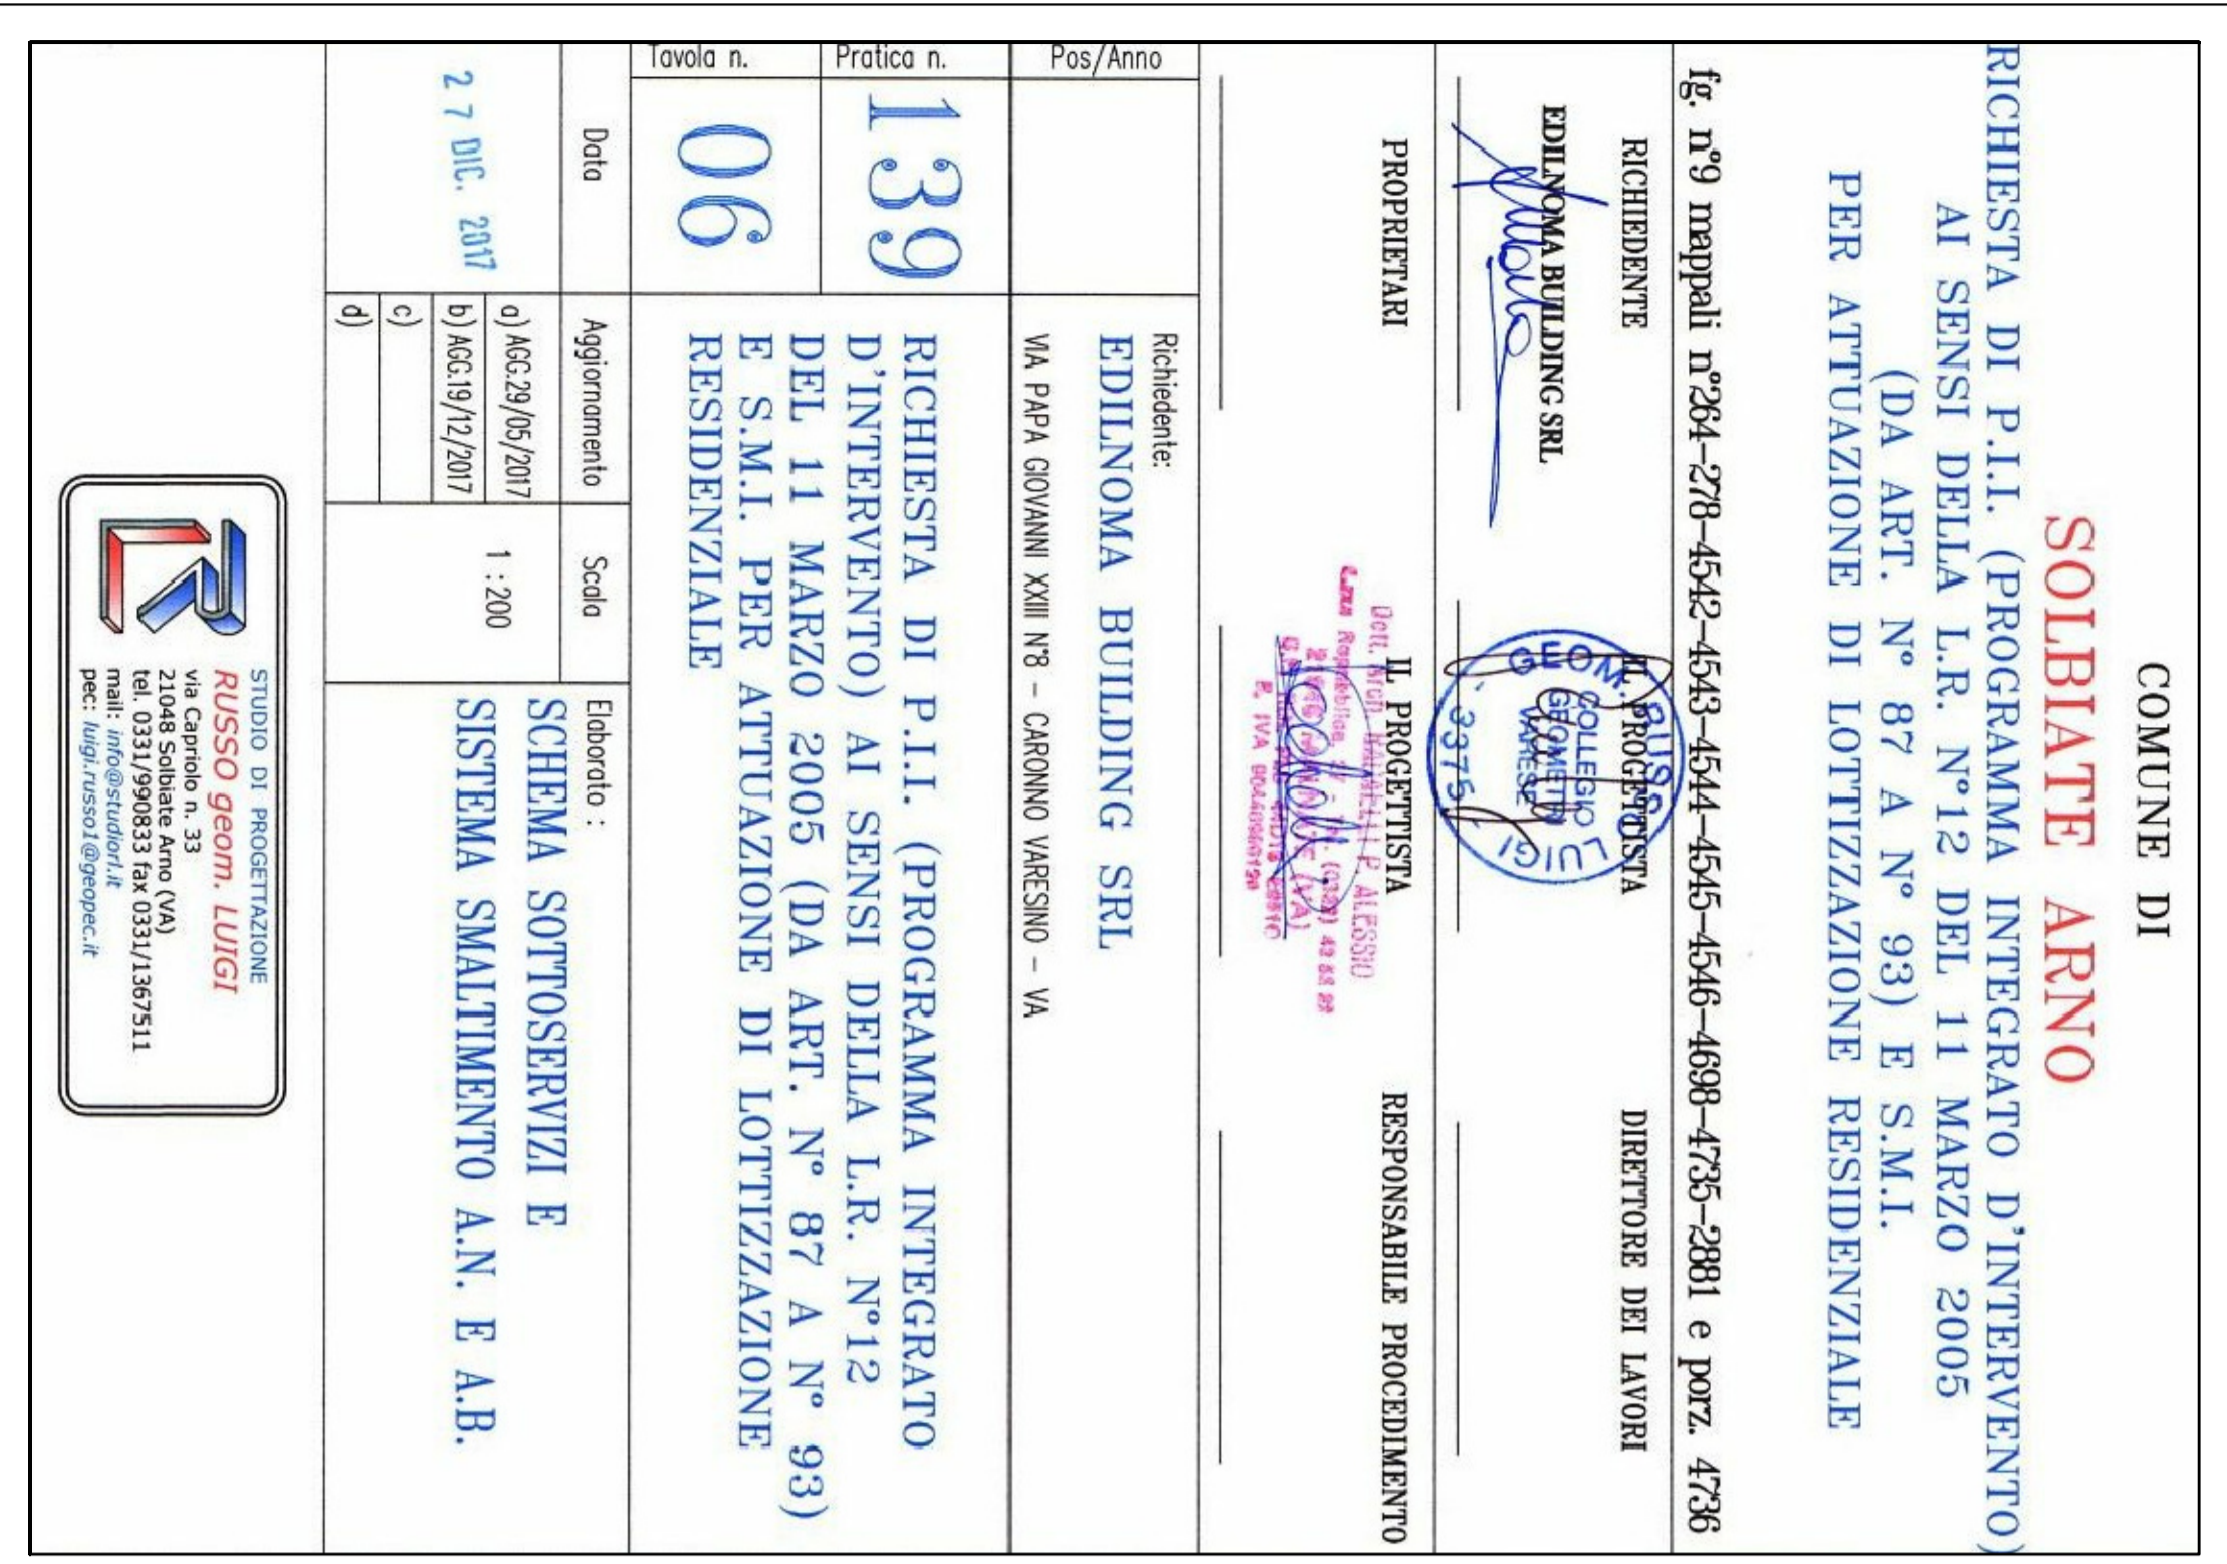 COMUNE DI
SOLBIATE ARNO
RICHIESTA DI P.I.I. (PROGRAMMA INTEGRATO D'INTERVENTO)
AI SENSI DELLA L.R. N°12 DEL 11 MARZO 2005
(DA ART. N° 87 A N° 93) E S.M.I.
PER ATTUAZIONE DI LOTTIZZAZIONE RESIDENZIALE
fg. n°9 mappali n°264-278-4542-4543-4544-4545-4546-4698-4735-2881 e porz. 4736
RICHIEDENTE
EDILNOMA BUILDING SRL
IL PROGETTISTA
GEOM. RUSSO LUIGI
COLLEGIO
GEOMETRI
VARESE
3375
DIRETTORE DEI LAVORI
PROPRIETARI
IL PROGETTISTA
P. ALESSIO
RESPONSABILE PROCEDIMENTO
Pos/Anno
Richiedente:
EDILNOMA BUILDING SRL
VIA PAPA GIOVANNI XXIII N°8 - CARONNO VARESINO - VA
Pratica n.
139
Tavola n.
06
RICHIESTA DI P.I.I. (PROGRAMMA INTEGRATO
D'INTERVENTO) AI SENSI DELLA L.R. N°12
DEL 11 MARZO 2005 (DA ART. N° 87 A N° 93)
E S.M.I. PER ATTUAZIONE DI LOTTIZZAZIONE
RESIDENZIALE
Data
27 DIC. 2017
Aggiornamento
a) AGG.29/05/2017
b) AGG.19/12/2017
c)
d)
Scala
1:200
Elaborato :
SCHEMA SOTTOSERVIZI E
SISTEMA SMALTIMENTO A.N. E A.B.
LR
STUDIO DI PROGETTAZIONE
RUSSO geom. LUIGI
via Capriolo n. 33
21048 Solbiate Arno (VA)
tel. 0331/990833 fax 0331/1367511
mail: info@studiorl.it
pec: luigi.russo1@geopec.it